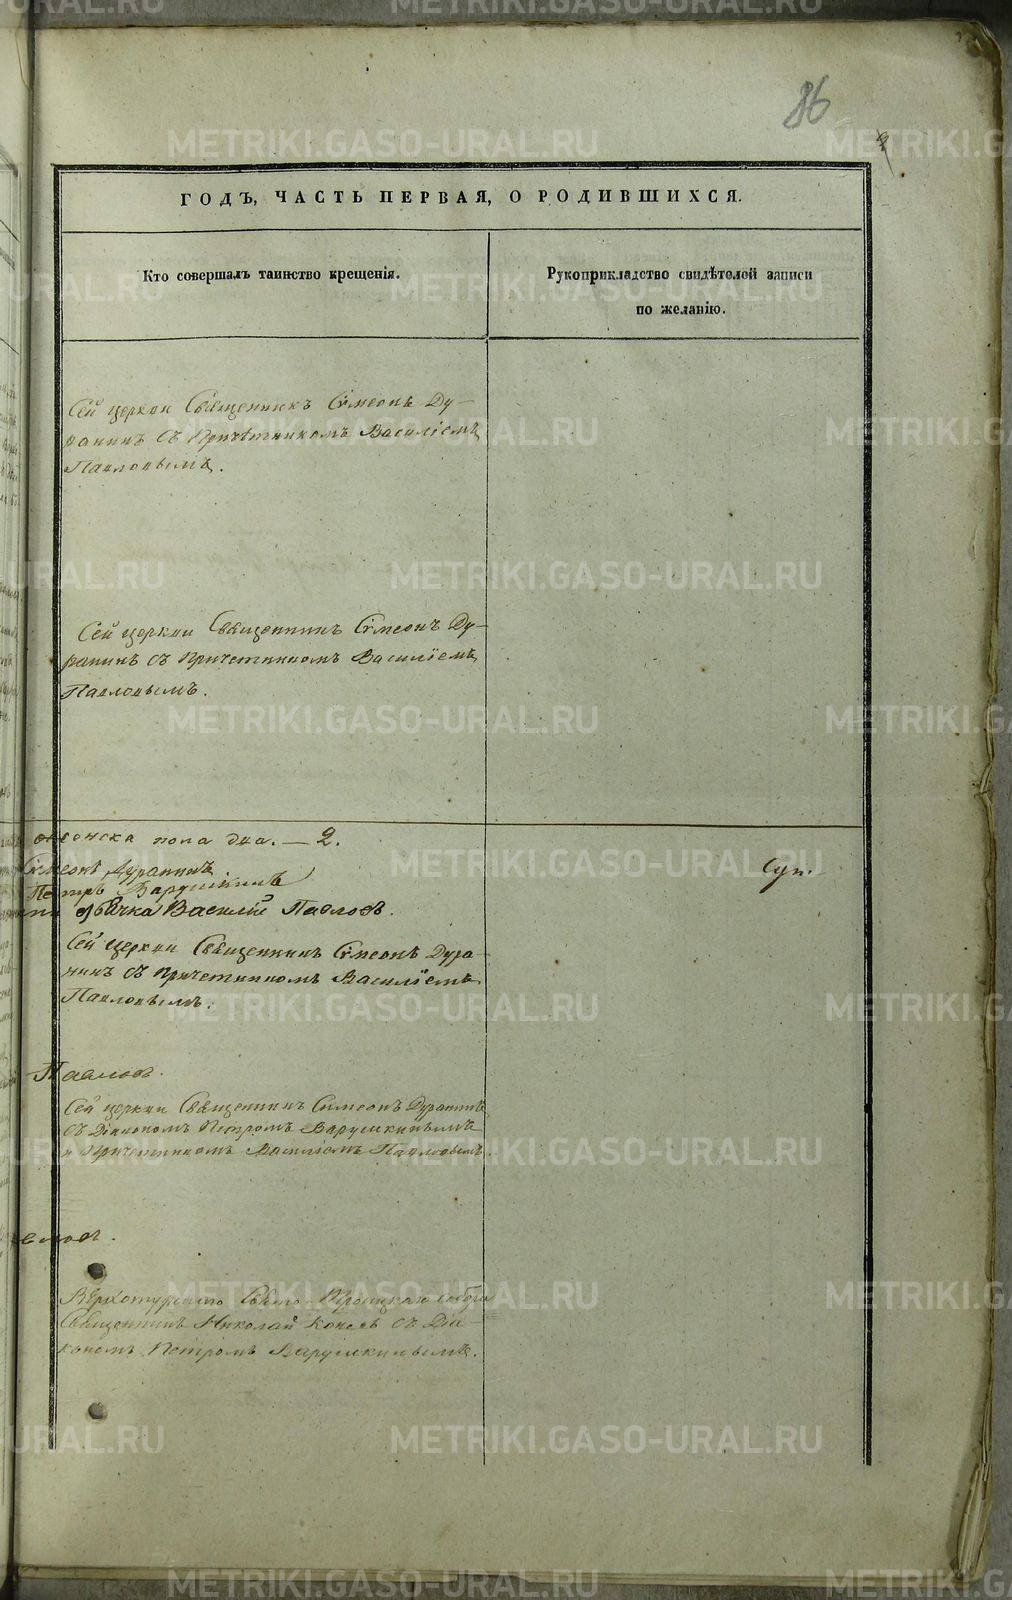 86
ГОДЪ, ЧАСТЬ ПЕРВАЯ, О РОДИВШИХСЯ.
Кто совершалъ таинство крещенія.
Рукоприкладство свидѣтелей записи
по желанію.
Сей церкви Священникъ Сѵмеонъ Ду-
ранинъ съ Причетникомъ Василіемъ
Павловымъ.
Сей церкви Священникъ Сѵмеонъ Ду-
ранинъ съ Причетникомъ Василіемъ
Павловымъ.
пола два. — 2.
Сѵмеонъ Дуранинъ
Петръ Варушкинъ
Василій Павловъ.
Сей церкви Священникъ Сѵмеонъ Дура-
нинъ съ Причетникомъ Василіемъ
Павловымъ.
Павловъ.
Сей церкви Священникъ Симеонъ Дуранинъ
съ Діакономъ Петромъ Варушкинымъ
и Причетникомъ Василіемъ Павловымъ.
Верхотурскаго Свято-Троицкаго собора
Священникъ Николай съ Діа-
кономъ Петромъ Варушкинымъ.
METRIKI.GASO-URAL.RU